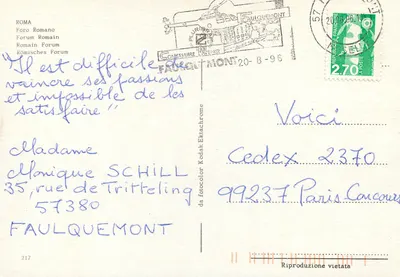 ROMA
Foro Romano
Forum Romain
Romain Forum
Römisches Forum
"Il est difficile de
vaincre ses passions
et impossible de les
satisfaire"
Madame
Monique SCHILL
35, rue de Tritteling
57380
FAULQUEMONT
217
FAULQUEMONT 20-8-96
57
2,70
da fotocolor Kodak Ektachrome
Voici
Cedex 2370
99237 Paris Concours
Riproduzione vietata